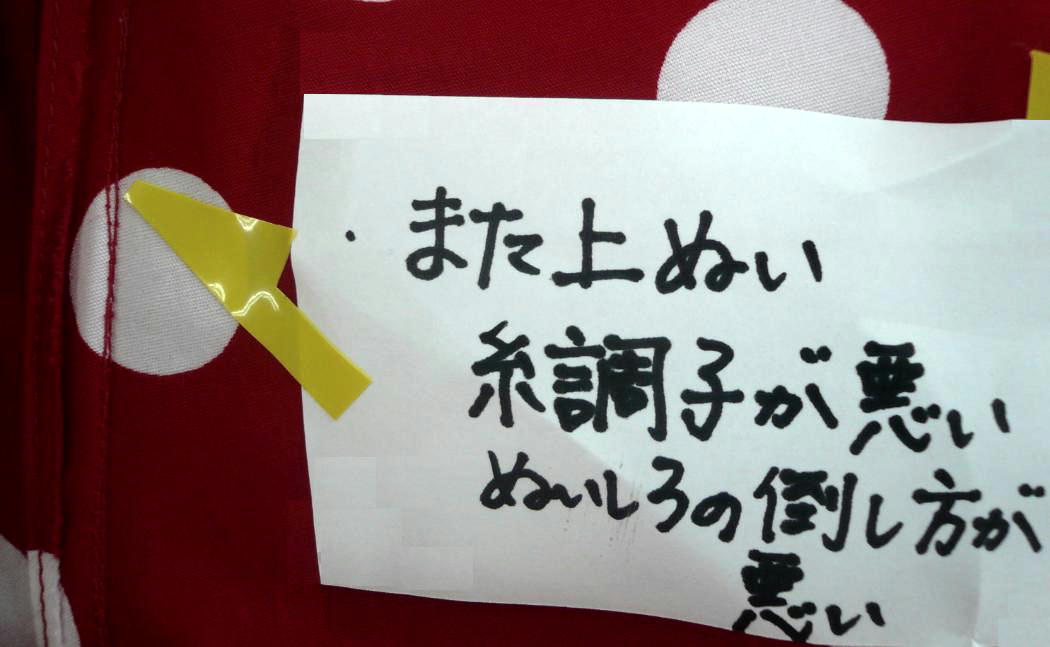 ・また上ぬい
糸調子が悪い
ぬいしろの倒し方が
悪い